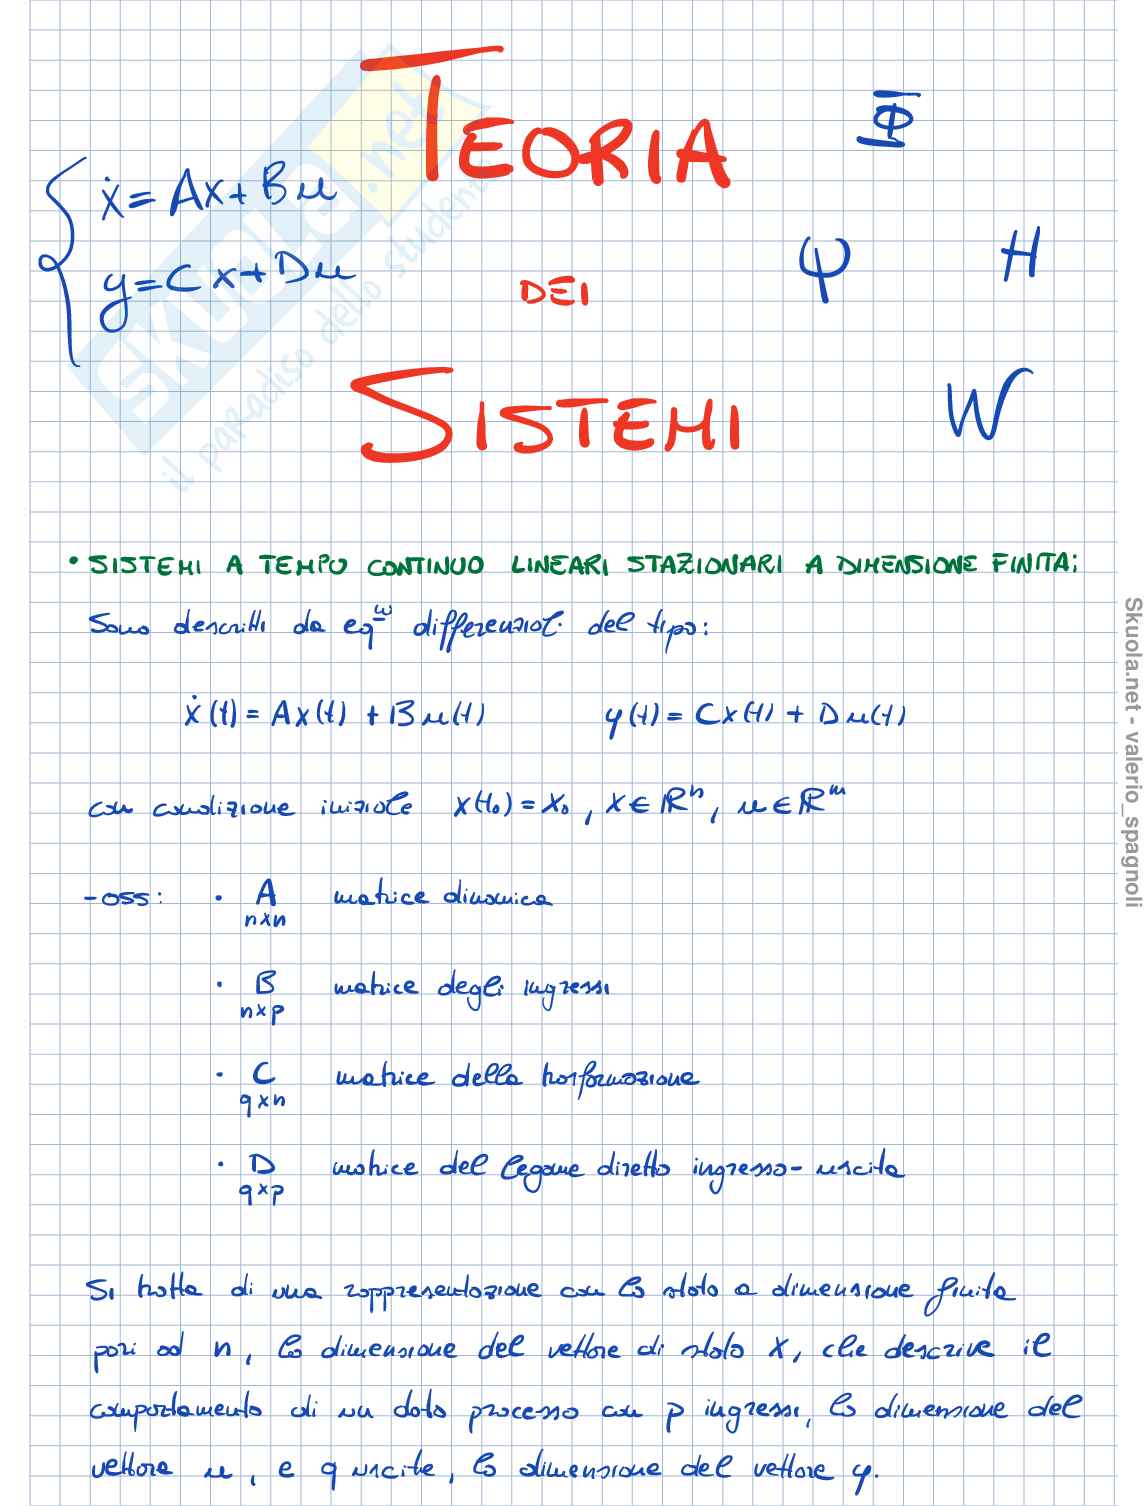 TEORIA
DEI
SISTEMI
ẋ = Ax + Bu
y = Cx + Du
Φ
Ψ H
W
• SISTEMI A TEMPO CONTINUO LINEARI STAZIONARI A DIMENSIONE FINITA:
Sono descritti da eqⁿⁱ differenziali del tipo:
ẋ(t) = Ax(t) + Bu(t) y(t) = Cx(t) + Du(t)
con condizione iniziale x(t₀) = x₀, x ∈ ℝⁿ, u ∈ ℝᵐ
- oss: • A matrice dinamica
n×n
• B matrice degli ingressi
n×p
• C matrice della trasformazione
q×n
• D matrice del legame diretto ingresso-uscita
q×p
Si tratta di una rappresentazione con lo stato a dimensione finita
pari ad n, la dimensione del vettore di stato x, che descrive il
comportamento di un dato processo con p ingressi, la dimensione del
vettore u, e q uscite, la dimensione del vettore y.
SKUOLA.net
il paradiso dello studente
Skuola.net - valerio_spagnoli